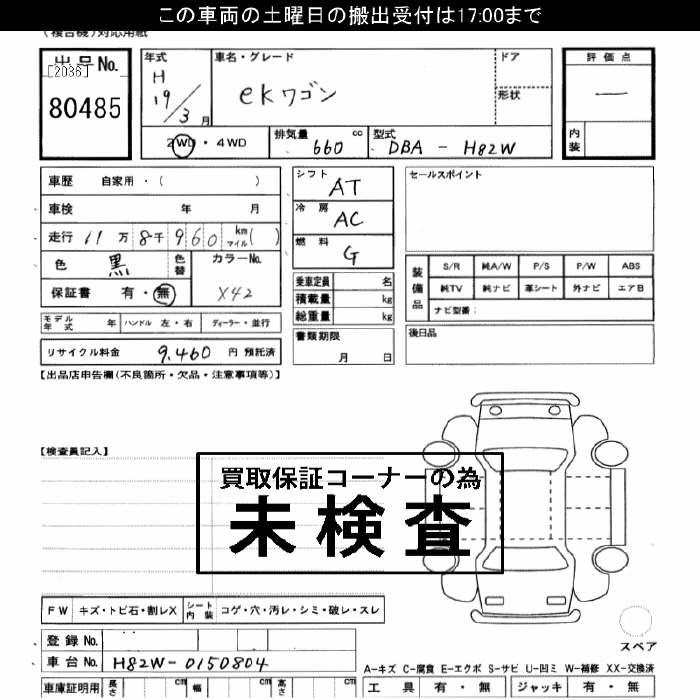 この車両の土曜日の搬出受付は17:00まで
(複合機)対応用紙
出品No.
[2036]
80485
年式
H
19/3月
車名・グレード
ekワゴン
ドア
形状
評価点
―
内装
2WD・4WD
排気量 660 cc
型式 DBA - H82W
車歴 自家用・( )
車検 年 月
走行 11万8千960 km マイル( )
色 黒 色替
カラーNo.
X42
保証書 有・無
モデル年式 年 ハンドル 左・右 ディーラー・並行
リサイクル料金 9,460 円 預託済
シフト AT
冷房 AC
燃料 G
乗車定員 名
積載量 kg
総重量 kg
書類期限
月 日
セールスポイント
装備品
S/R 純A/W P/S P/W ABS
純TV 純ナビ 革シート 外ナビ エアB
ナビ型番:
後日品
【出品店申告欄(不良箇所・欠品・注意事項等)】
【検査員記入】
買取保証コーナーの為
未検査
FW キズ・トビ石・割レX シート内装 コゲ・穴・汚レ・シミ・破レ・スレ
登録No.
車台No. H82W-0150804
車庫証明用 長さ cm 幅 cm 高さ cm
スペア
A-キズ C-腐食 E-エクボ S-サビ U-凹ミ W-補修 XX-交換済
工具 有・無 ジャッキ 有・無